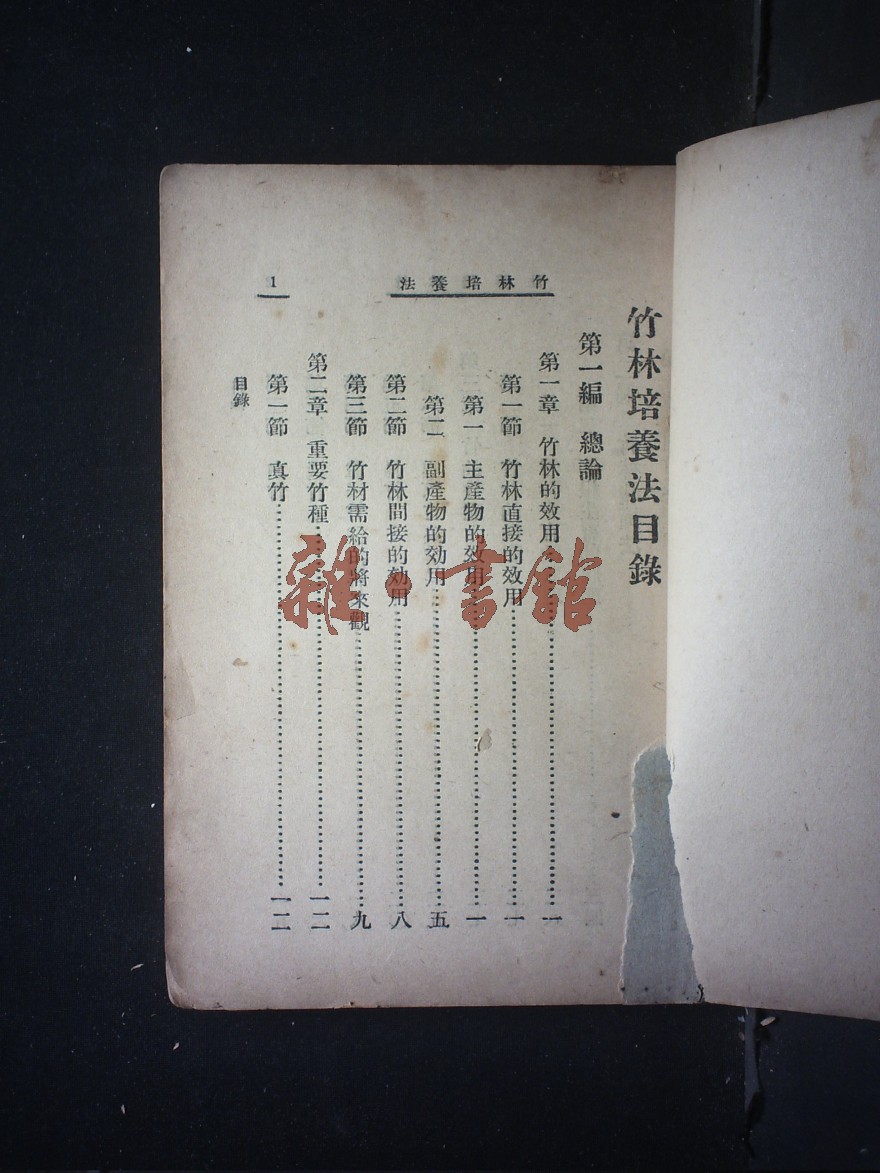 竹林培養法目錄
竹林培養法
第一編　總論
第一章　竹林的效用………一
第一節　竹林直接的效用………一
第一　主產物的效用………一
第二　副產物的効用………五
第二節　竹林間接的効用………八
第三節　竹材需給的將來觀………九
第二章　重要竹種………一二
第一節　真竹………一二
目錄
1
雜·書館